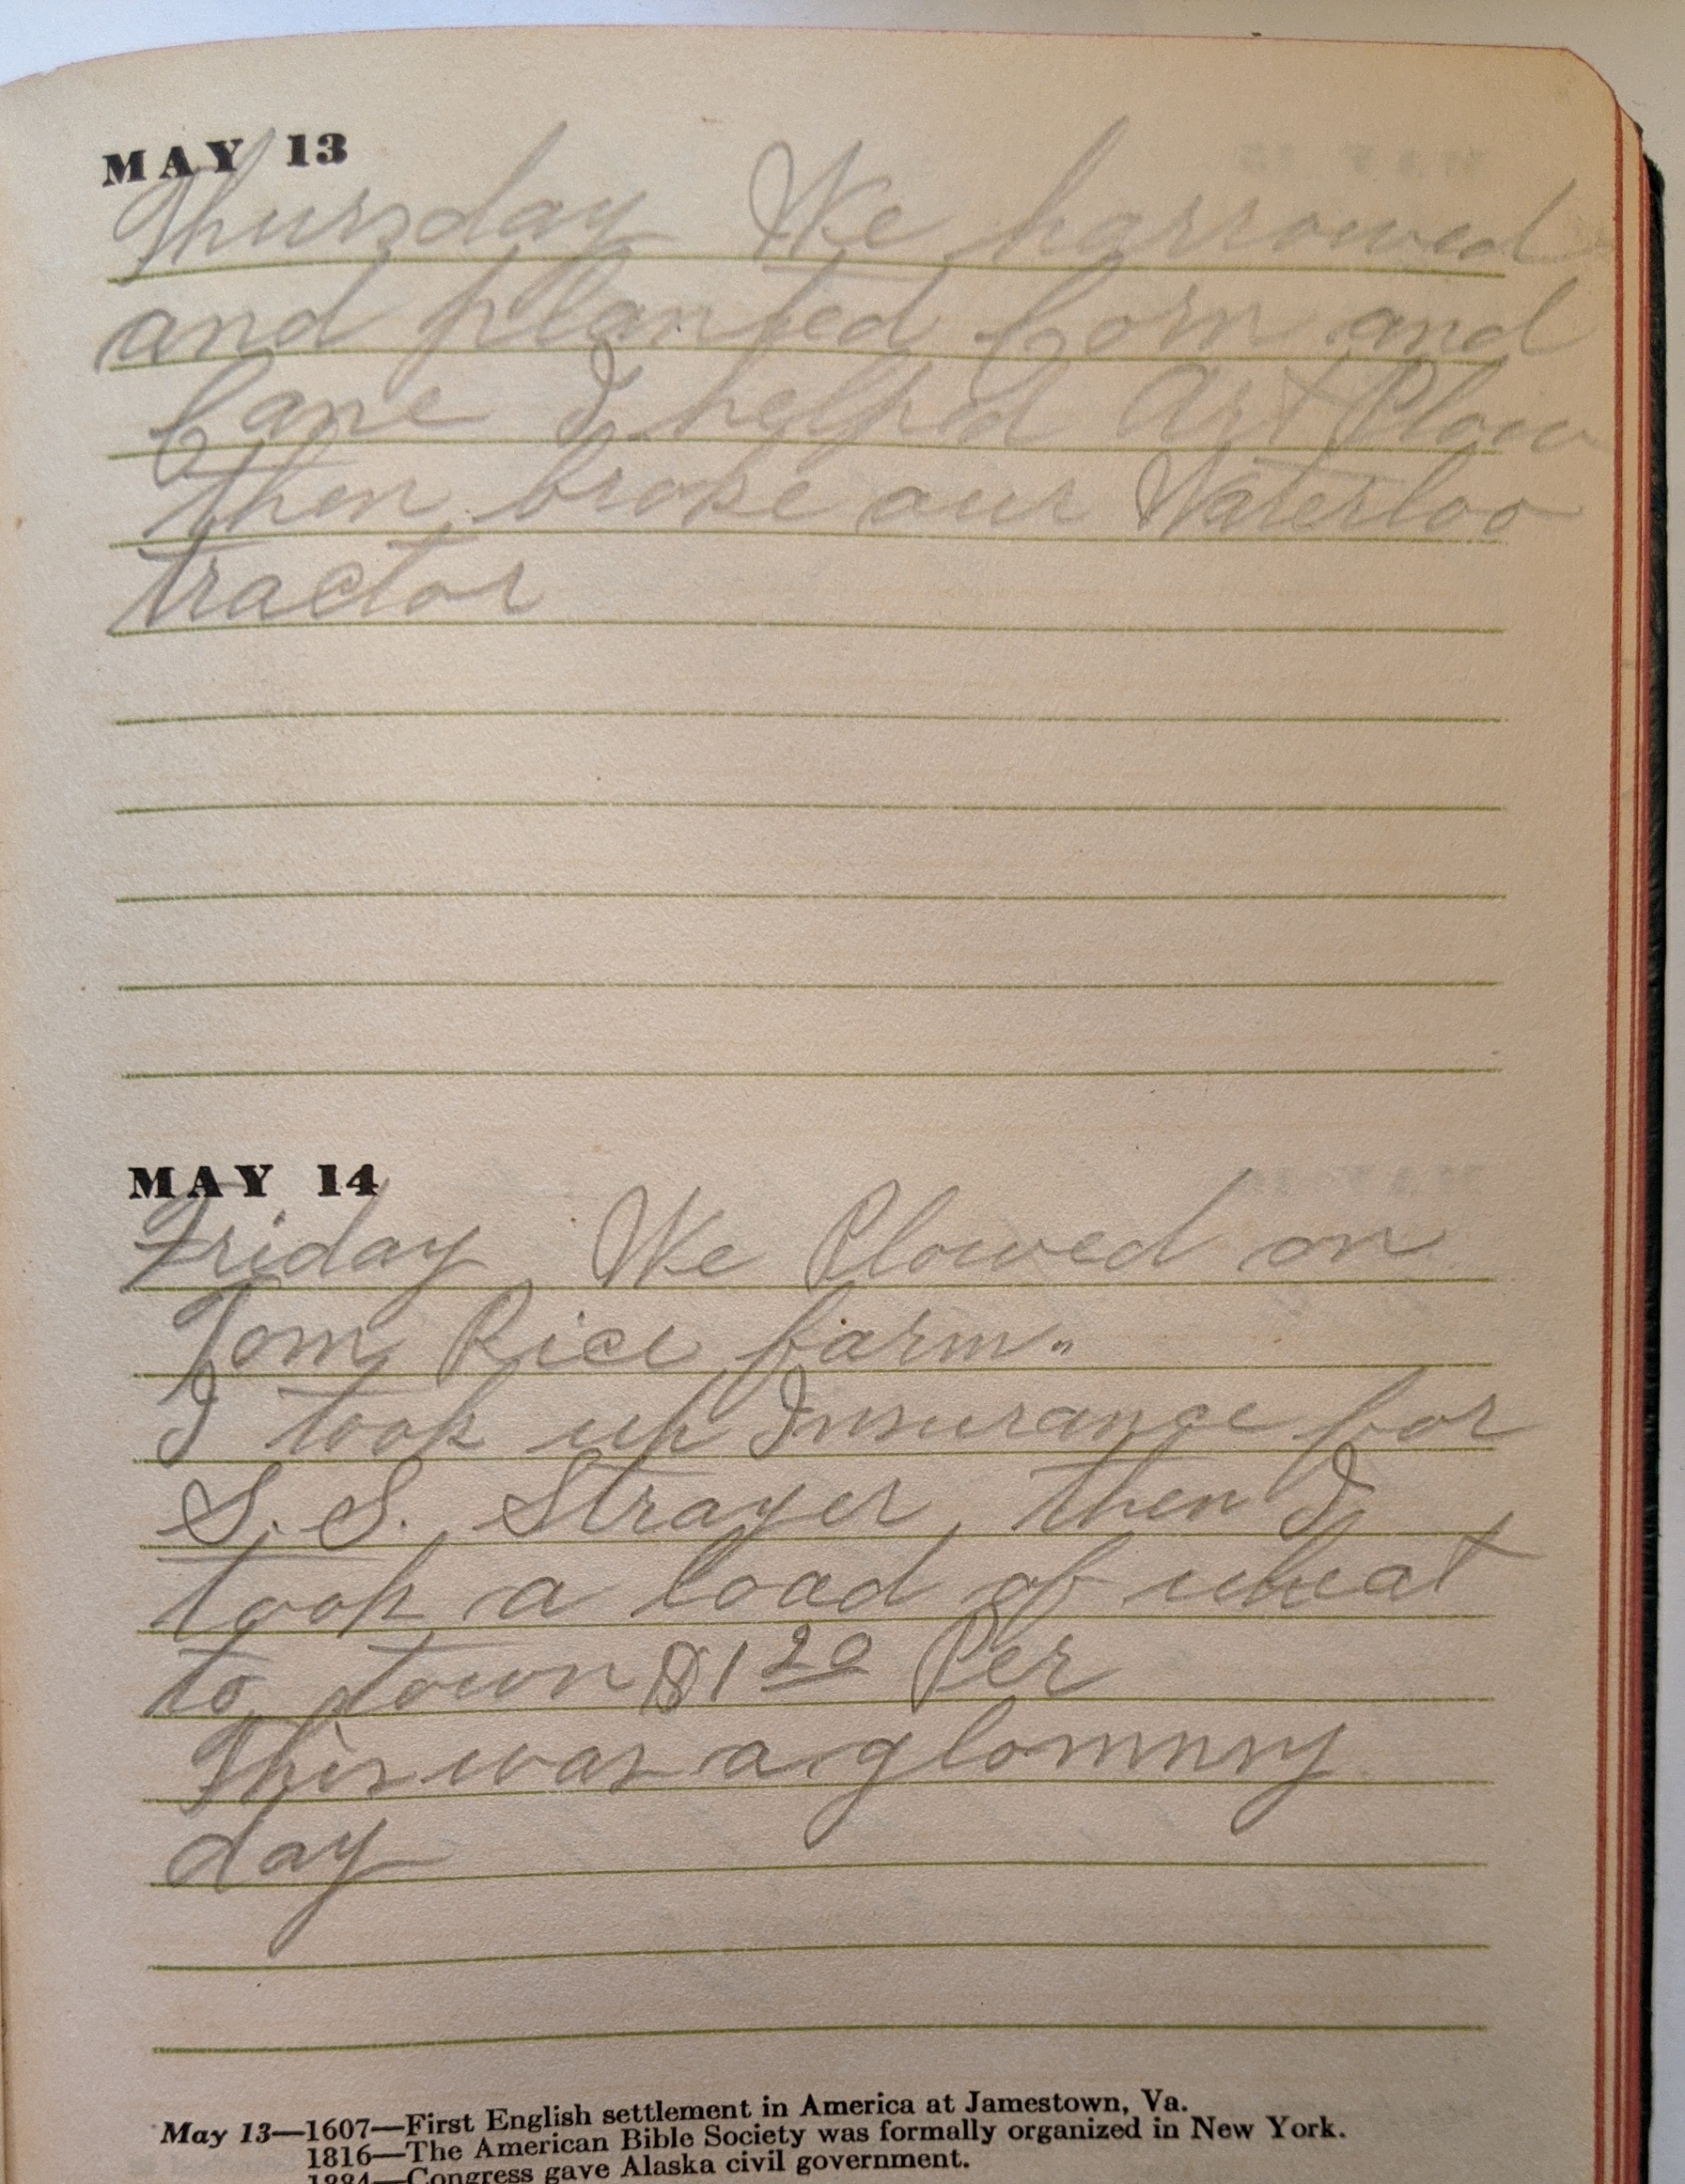 MAY 13
Thursday We harrowed
and planted Corn and
Cane I helped Art Plow
then broke our Waterloo
tractor
MAY 14
Friday We Plowed on
Tom Rice farm..
I took up Insurance for
S. S. Strayer, then I
took a load of wheat
to town $1 20 Per
This was a glommny
day
May 13—1607—First English settlement in America at Jamestown, Va.
1816—The American Bible Society was formally organized in New York.
1884—Congress gave Alaska civil government.